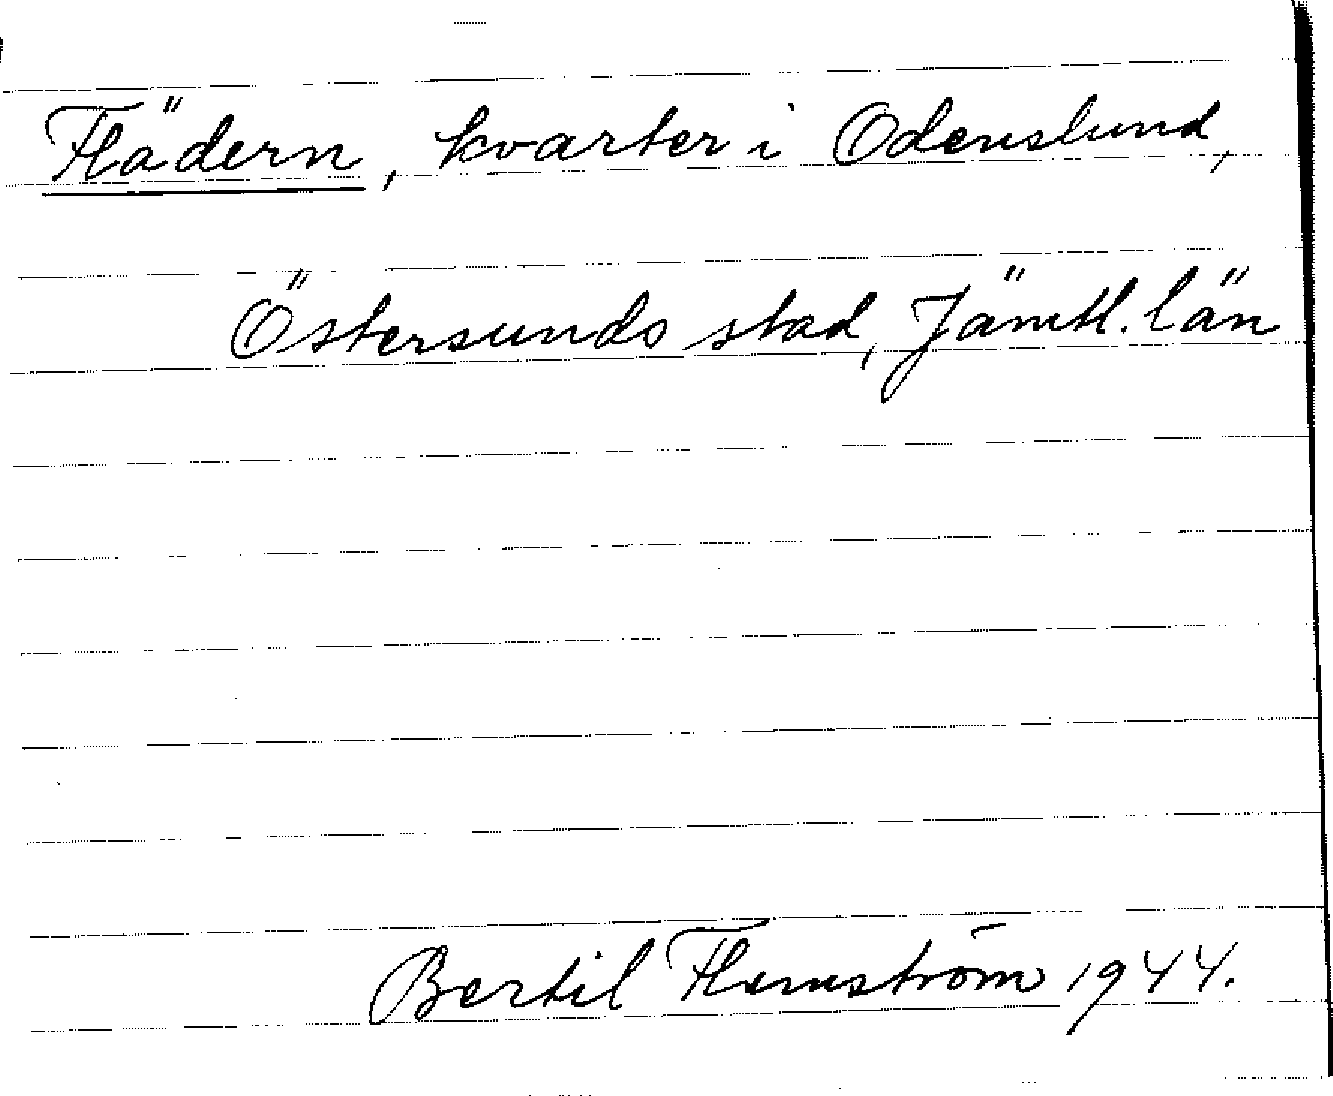 Flädern, kvarter i Odenslund,
Östersunds stad, Jämtl. län
Bertil Flemström 1944.